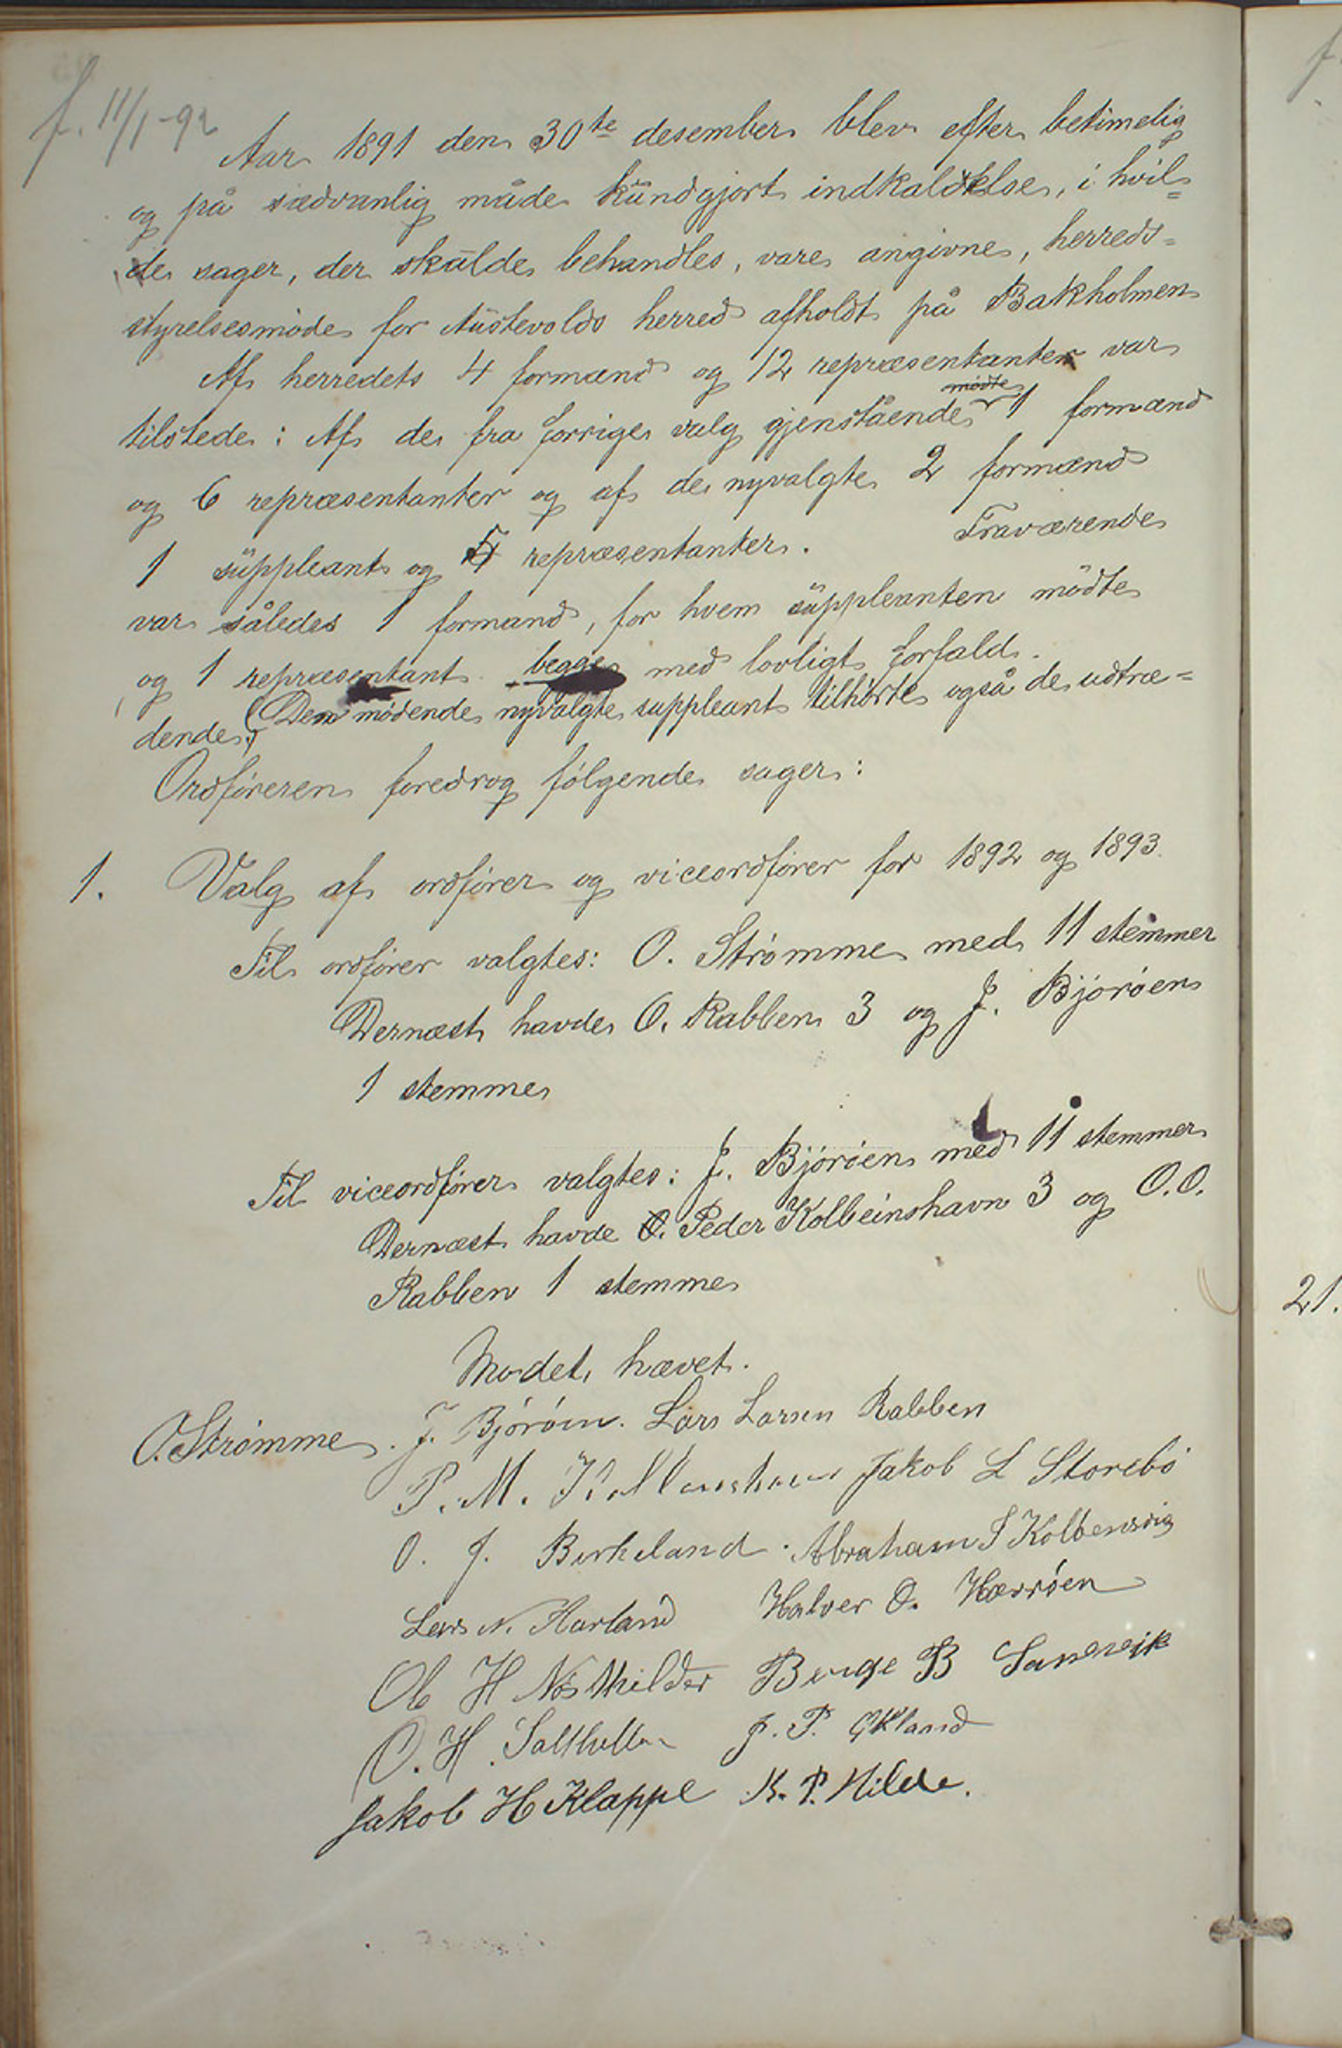 f. 11/1-92
Aar 1891 den 30te desember blev efter betimelig
og på sædvanlig måde kundgjort indkaldelse, i hvil=
de sager, der skulde behandles, vare angivne, herreds=
styrelsesmøde for Austevolds herred afholdt på Bakholmen
Af herredets 4 formænd og 12 repræsentanter var
mødte
tilstede: Af de fra forrige valg gjenstående 1 formand
og 6 repræsentanter og af de nyvalgte 2 formænd
1 suppleant og 5 repræsentanter. Fraværende
var således 1 formand, for hvem suppleanten mødte
og 1 repræsentant begge med lovligt forfald.
(Den mødende nyvalgte suppleant tilhørte også de udtræ=
dende.)
Ordføreren foredrog følgende sager:
1. Valg af ordfører og viceordfører for 1892 og 1893.
Til ordfører valgtes: O. Strømme med 11 stemmer
Dernæst havde O. Rabben 3 og J. Bjørøen
1 stemme
Til viceordfører valgtes: J. Bjørøen med 11 stemmer
Dernæst havde Peder Kolbeinshavn 3 og O.O.
Rabben 1 stemme
Mødet hævet.
O. Strømme. J. Bjørøen. Lars Larsen Rabben
P. M. Jakob L Storebø
O. J. Birkeland. Abraham S Kolbensvig
Lars N. Harland Halver O. Hærrøen
Ole H Nos Berge B Sandvik
O. H. J. P. Økland
Jakob H Klappe K. P. Hilde.
21.